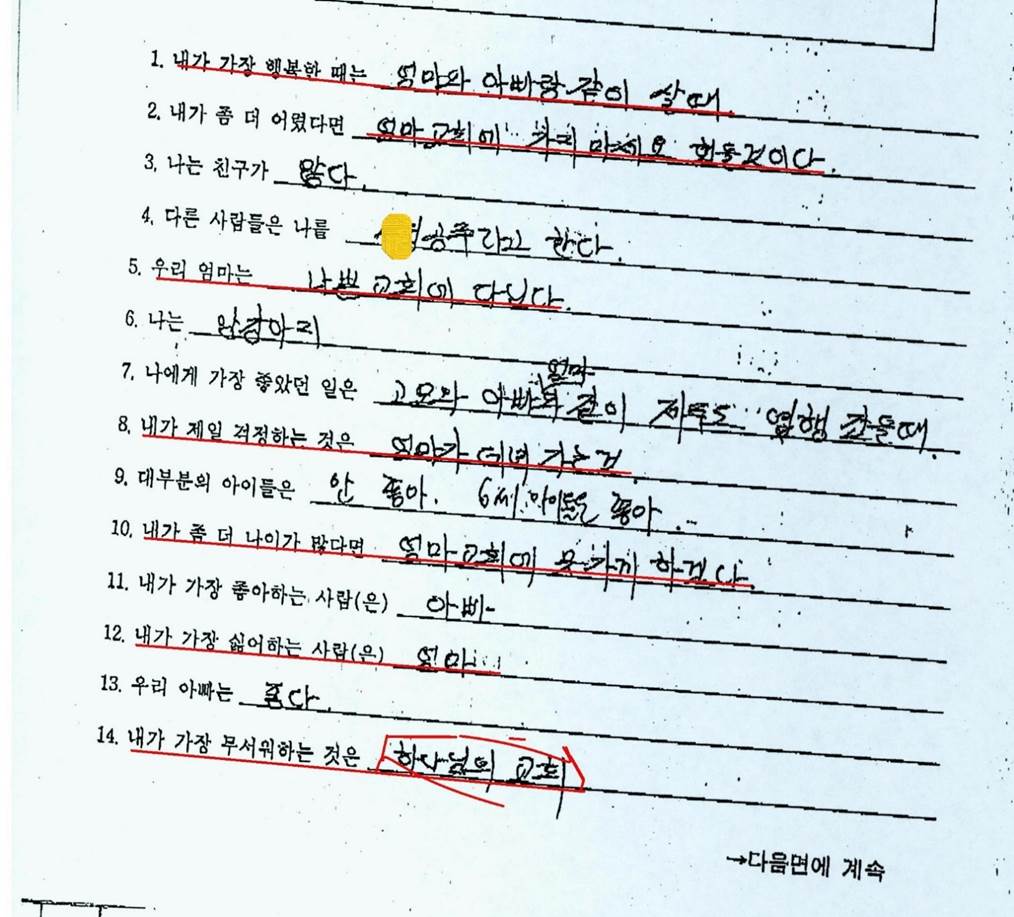 1. 내가 가장 행복한 때는 엄마와 아빠랑 같이 살때
2. 내가 좀 더 어렸다면 엄마 교회에 가지 마세요 했을것이다.
3. 나는 친구가 많다.
4. 다른 사람들은 나를 공주라고 한다.
5. 우리 엄마는 나쁜 교회에 다닌다.
6. 나는 왕강아지
엄마
7. 나에게 가장 좋았던 일은 고모와 아빠와 같이 제주도 여행 갔을때.
8. 내가 제일 걱정하는 것은 엄마가 데려 가는 거.
9. 대부분의 아이들은 안 좋아. 6세 아이들은 좋아.
10. 내가 좀 더 나이가 많다면 엄마 교회에 못가게 하겠다.
11. 내가 가장 좋아하는 사람(은) 아빠
12. 내가 가장 싫어하는 사람(은) 엄마
13. 우리 아빠는 좋다.
14. 내가 가장 무서워하는 것은 하나님의 교회
→다음면에 계속